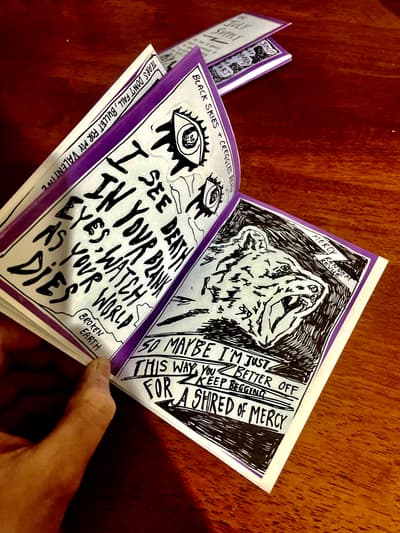 TEARS DON'T FALL, BULLET FOR MY VALENTINE
BLACK SKIES +
I SEE DEATH
IN YOUR BLANK
EYES, WATCH
AS YOUR WORLD
DIES
BROKEN
EARTH
MERCY
SO MAYBE I'M JUST
BETTER OFF
THIS WAY YOU
KEEP BEGGING
FOR A SHRED OF MERCY